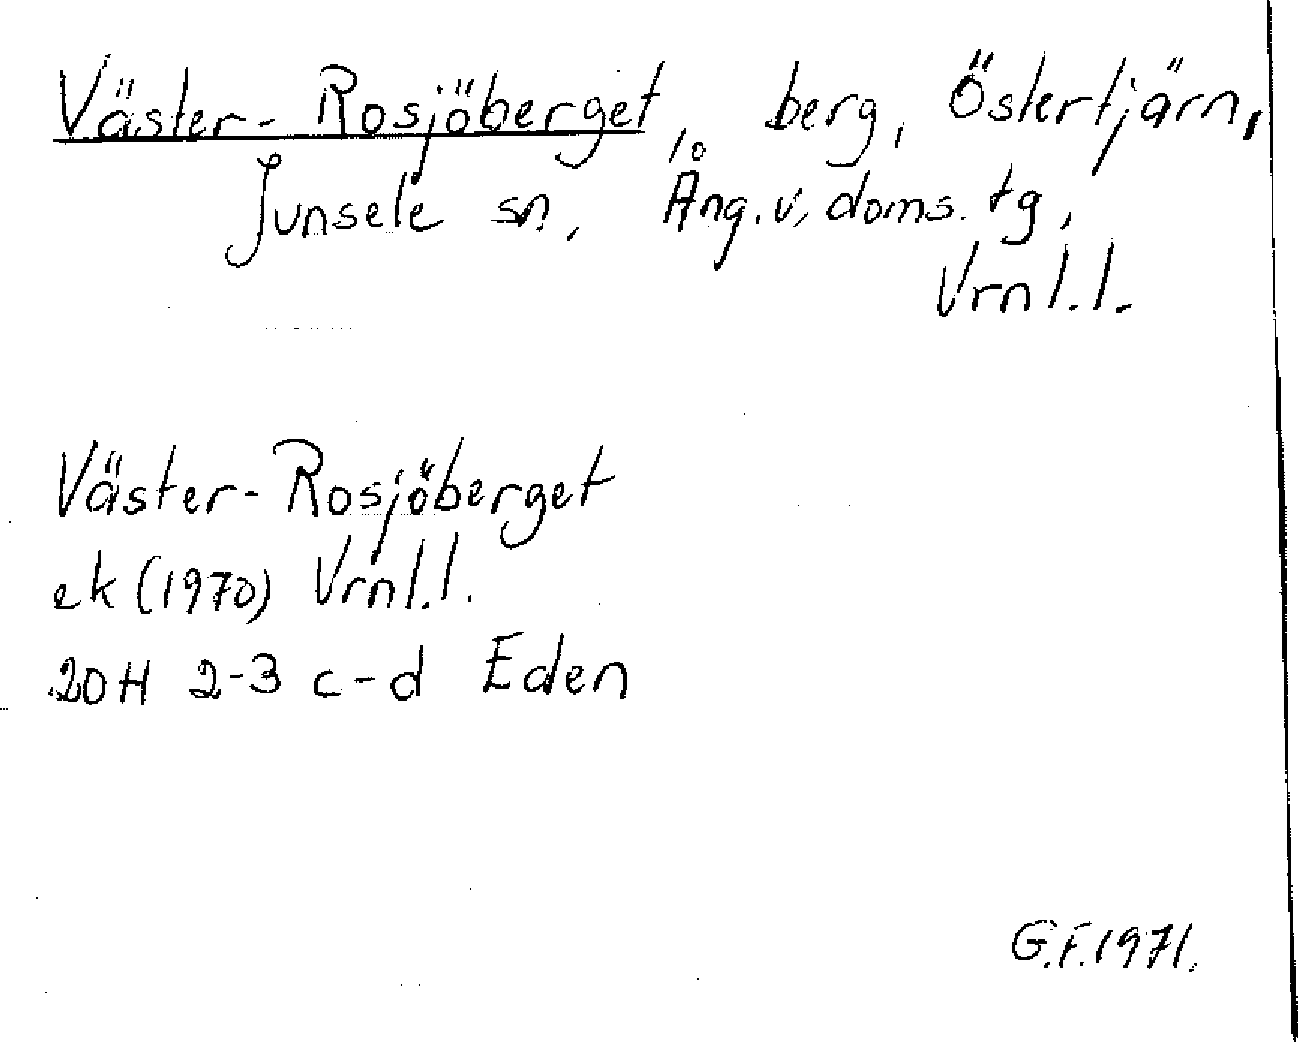 Väster-Rosjöberget, berg, Östertjärn,
Junsele sn, Ång.v. doms. tg,
Vrnl.l.
Väster-Rosjöberget
ek (1970) Vrnl.l.
20H 2-3 c-d Eden
G.F.1971.